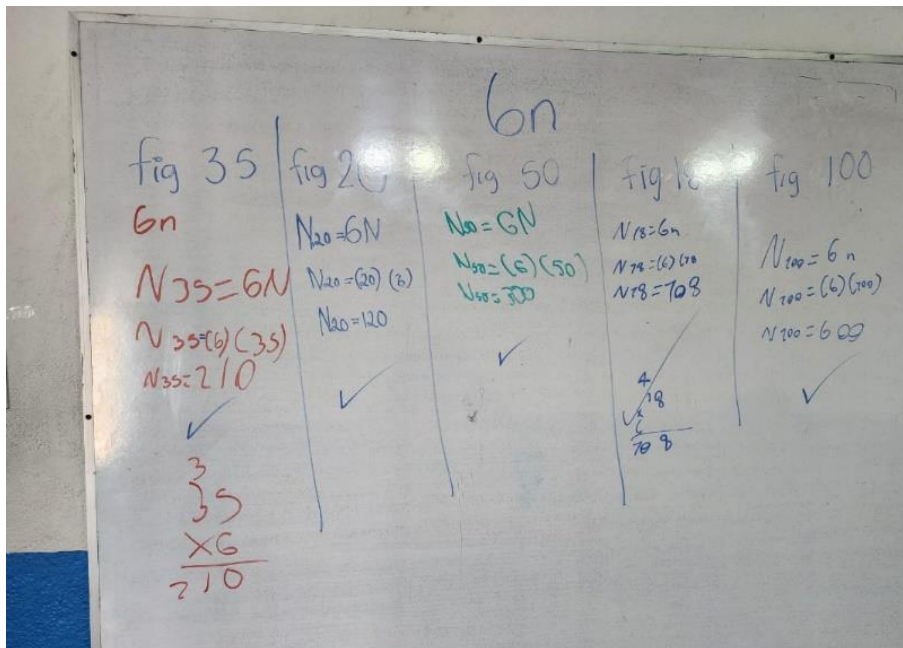 6n
fig 35
6n
N35=6N
N35=(6)(35)
N35=210
3
35
x6
210
fig 20
N20=6N
N20=(20)(6)
N20=120
fig 50
N50=6N
N50=(6)(50)
N50=300
fig 18
N18=6n
N18=(6)(18
N18=108
4
18
x
6
108
fig 100
N100=6n
N100=(6)(100)
N100=600